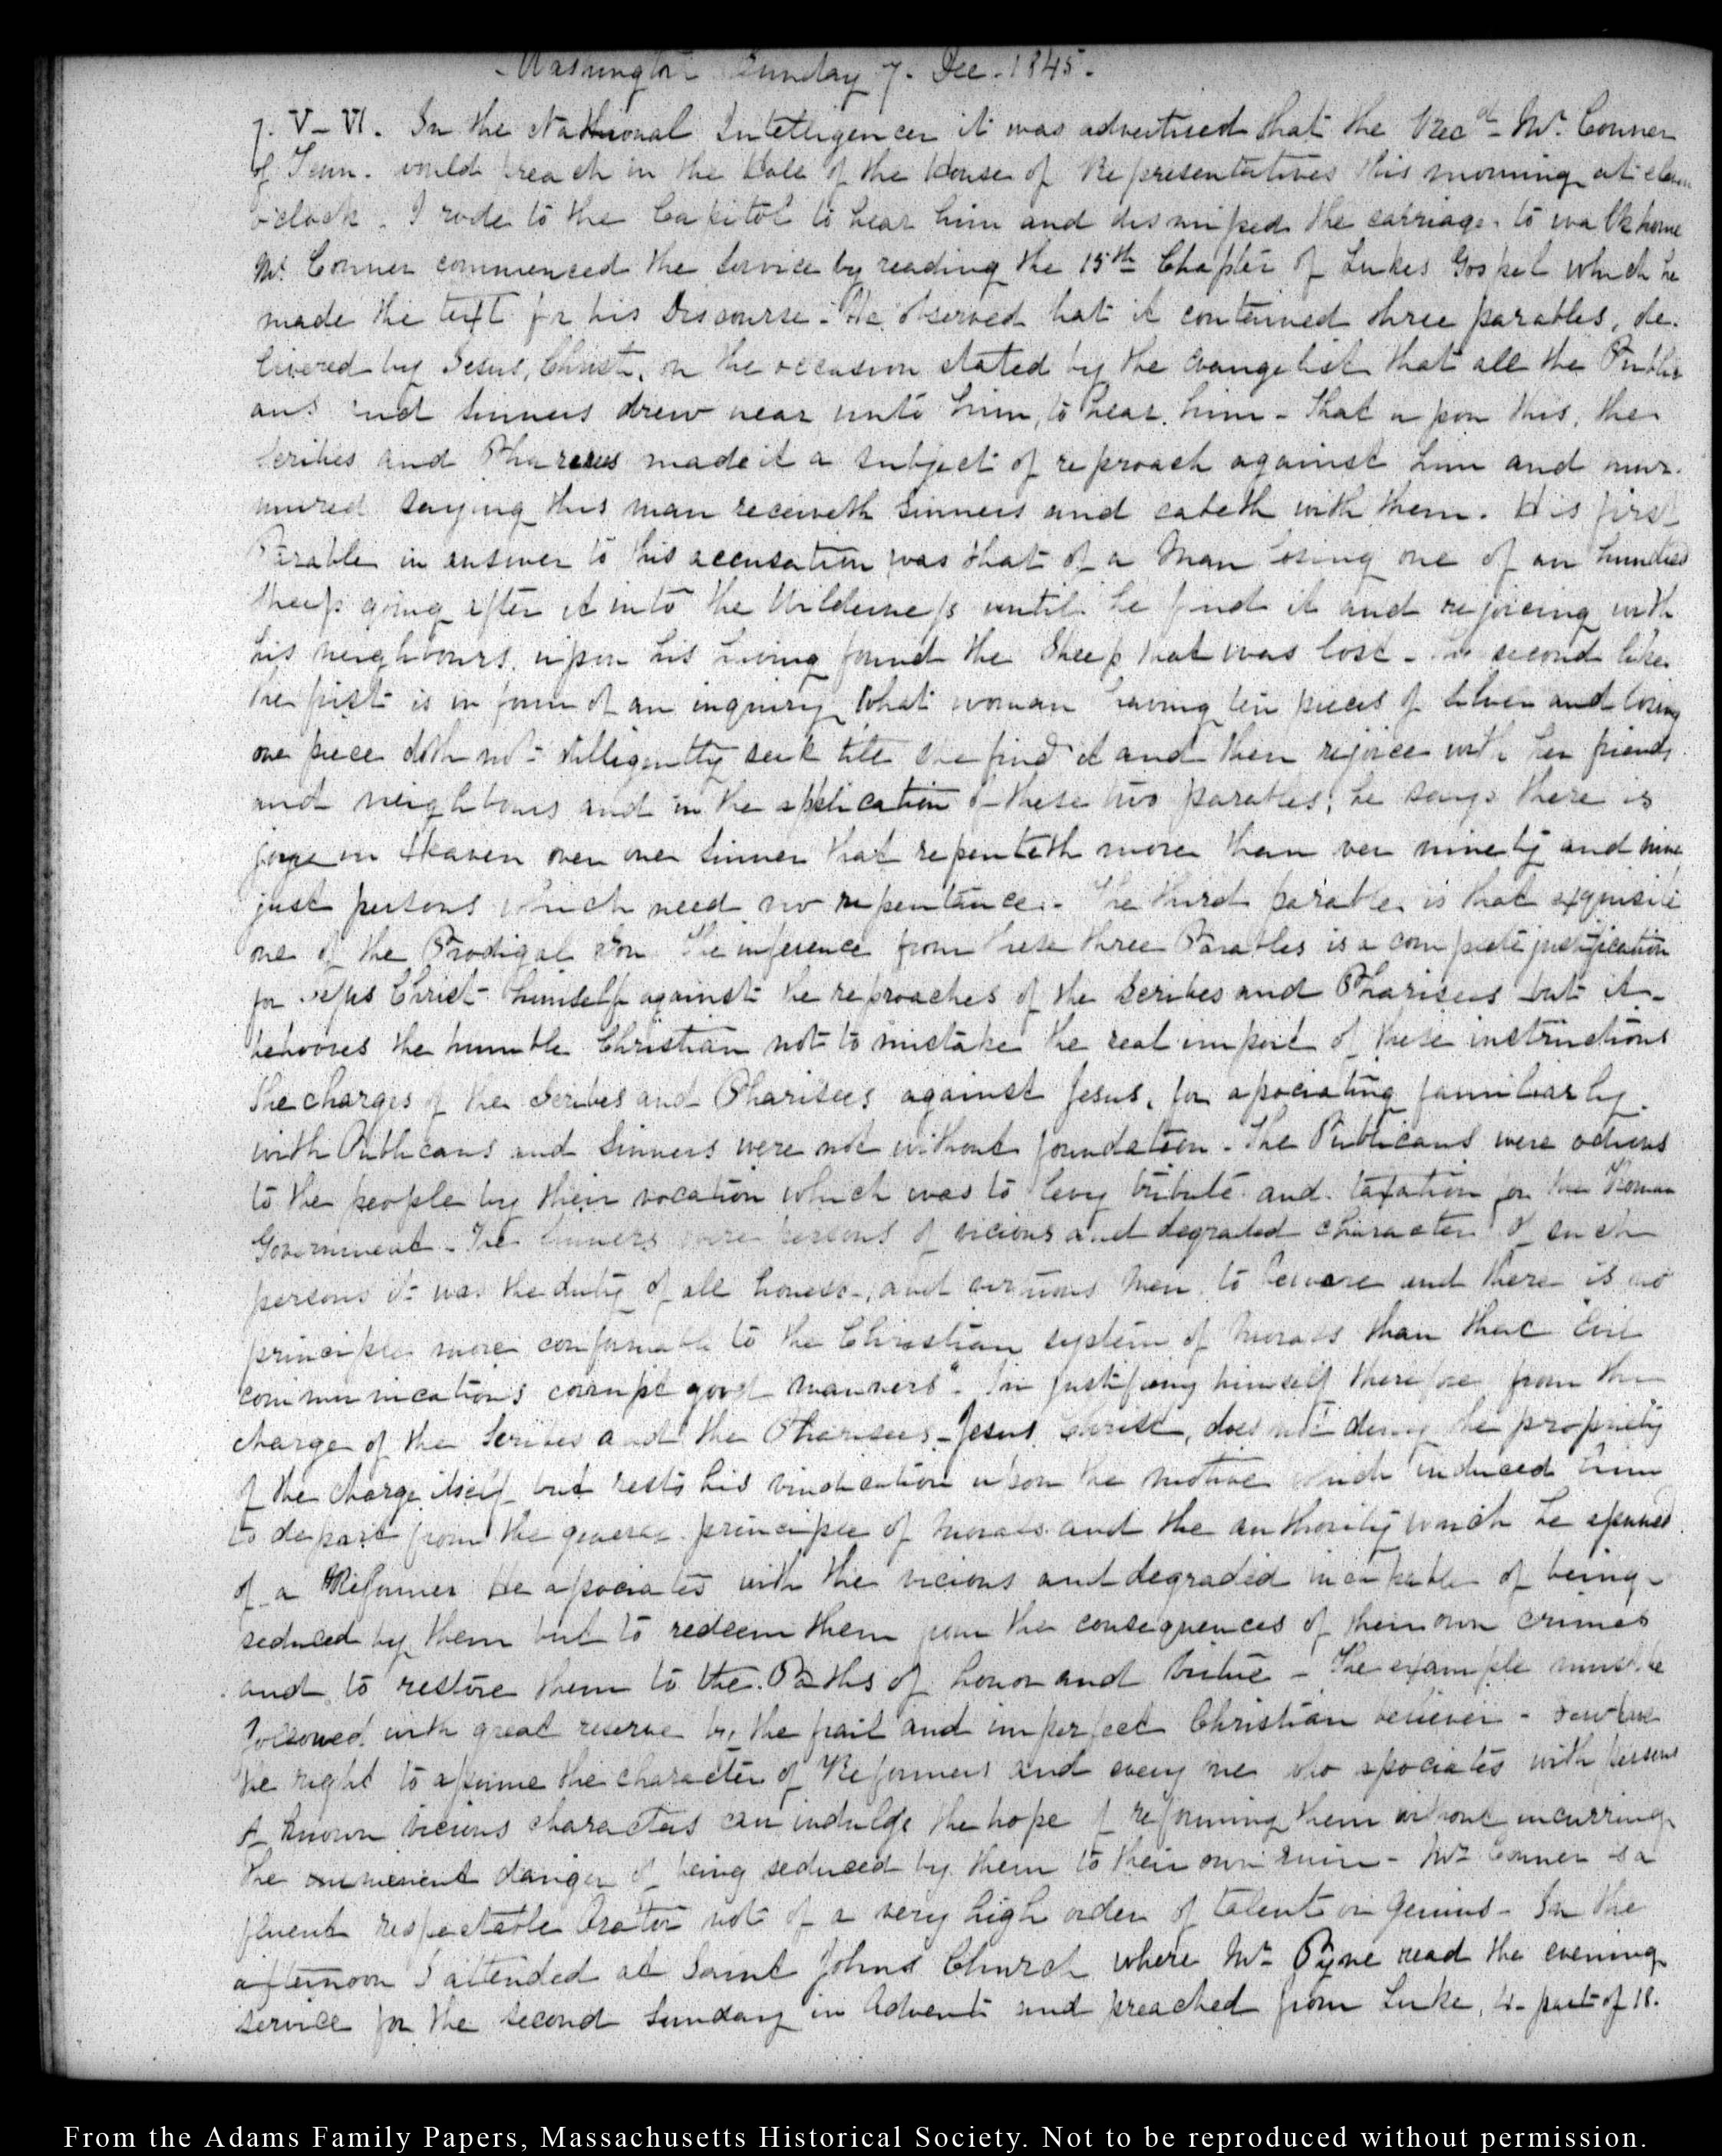 Washington Sunday 7. Dec. 1845.
7. V–VI. In the National Intelligencer it was advertised that the Revd. Mr. Conner
of Tenn. would preach in the Hall of the House of Representatives this morning at eleven
o'clock. I rode to the Capitol to hear him and dismissed the carriage, to walk home
Mr. Conner commenced the service by reading the 15th Chapter of Lukes Gospel which he
made the text for his Discourse. He observed that it contained three parables, de-
livered by Jesus, Christ, on the occasion stated by the evangelist that all the Public
ans and sinners drew near unto him, to hear him – that upon this, the
scribes and Pharisees made it a subject of reproach against him and mur-
mured saying this man receiveth sinners and eateth with them. His first
Parable in answer to this accusation was that of a Man losing one of an hundred
sheep going after it into the Wilderness until he find it and rejoicing with
his neighbours upon his having found the Sheep that was lost – the second like
the first is in form of an inquiry What woman having ten pieces of silver and losing
one piece doth not dilligently seek till she find it and then rejoice with her friends
and neighbours and in the application of these two parables, he says there is
joy in Heaven over one sinner that repenteth more than over ninety and nine
just persons which need no repentance. – The third parable is that exquisite
one of the Prodigal Son. The inference from these three Parables is a complete justification
for Jesus Christ himself against the reproaches of the Scribes and Pharisees but it
behooves the humble Christian not to mistake the real import of these instructions
The charges of the Scribes and Pharisees against Jesus, for associating familiarly
with Publicans and Sinners were not without foundation – The Publicans were odious
to the people by their vocation which was to levy tribute and taxation for the Roman
Government – The Sinners were persons of vicious and degraded character. Of such
persons it was the duty of all honest, and virtuous Men to beware and there is no
principle more conformable to the Christian system of Morals than that "evil
communications corrupt good manners". In justifying himself therefore from the
charge of the Scribes and the Pharisees – Jesus Christ, does not deny the propriety
of the charge itself but rests his vindication upon the motive which induced him
to depart from the general principle of Morals and the authority which he assumed
of a Reformer He associates with the vicious and degraded incapable of being
seduced by them but to redeem them from the consequences of their own crimes
and to restore them to the Paths of honor and Virtue – The example must be
followed with great reserve by the frail and imperfect Christian believer – few have
the right to assume the character of Reformers and every one who associates with persons
of known vicious characters can indulge the hope of reforming them without incurring
the imminent danger of being seduced by them to their own ruin – Mr. Conner is a
fluent respectable Orator not of a very high order of talent or genius – In the
afternoon I attended at Saint Johns Church where Mr. Pyne read the evening
service for the second Sunday in Advent and preached from Luke, 4. part of 18.
From the Adams Family Papers, Massachusetts Historical Society. Not to be reproduced without permission.